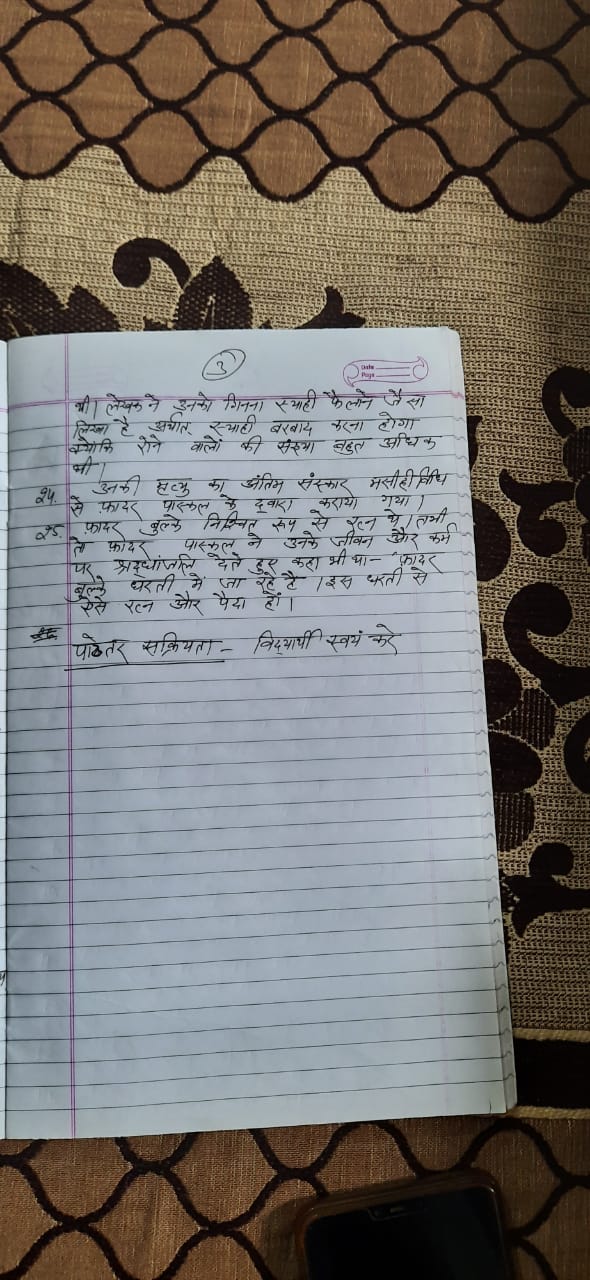 3
Date
Page
थी। लेखक ने उनको गिनना स्याही फैलाने जैसा
लिखा है अर्थात् स्याही बरबाद करना होगा
क्योंकि रोने वालों की संख्या बहुत अधिक
थी।
24. उनकी मृत्यु का अंतिम संस्कार मसीही विधि
से फ़ादर पास्कल के द्वारा कराया गया।
25. फ़ादर बुल्के निश्चित रूप से रत्न थे। तभी
तो फ़ादर पास्कल ने उनके जीवन और कर्म
पर श्रद्धांजलि देते हुए कहा भी था- फ़ादर
बुल्के धरती में जा रहे हैं। इस धरती से
ऐसे रत्न और पैदा हों।
पाठेतर सक्रियता - विद्यार्थी स्वयं करे